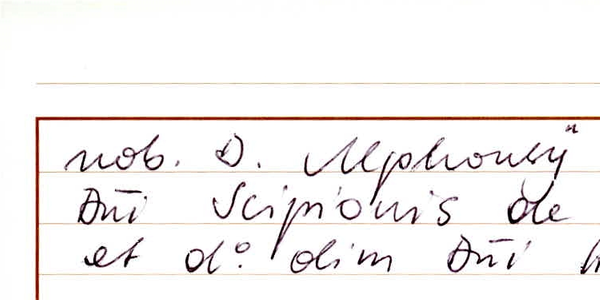 nob. D. Alphonsÿ
Dñi Scipionis de
et d.º olim Dñi